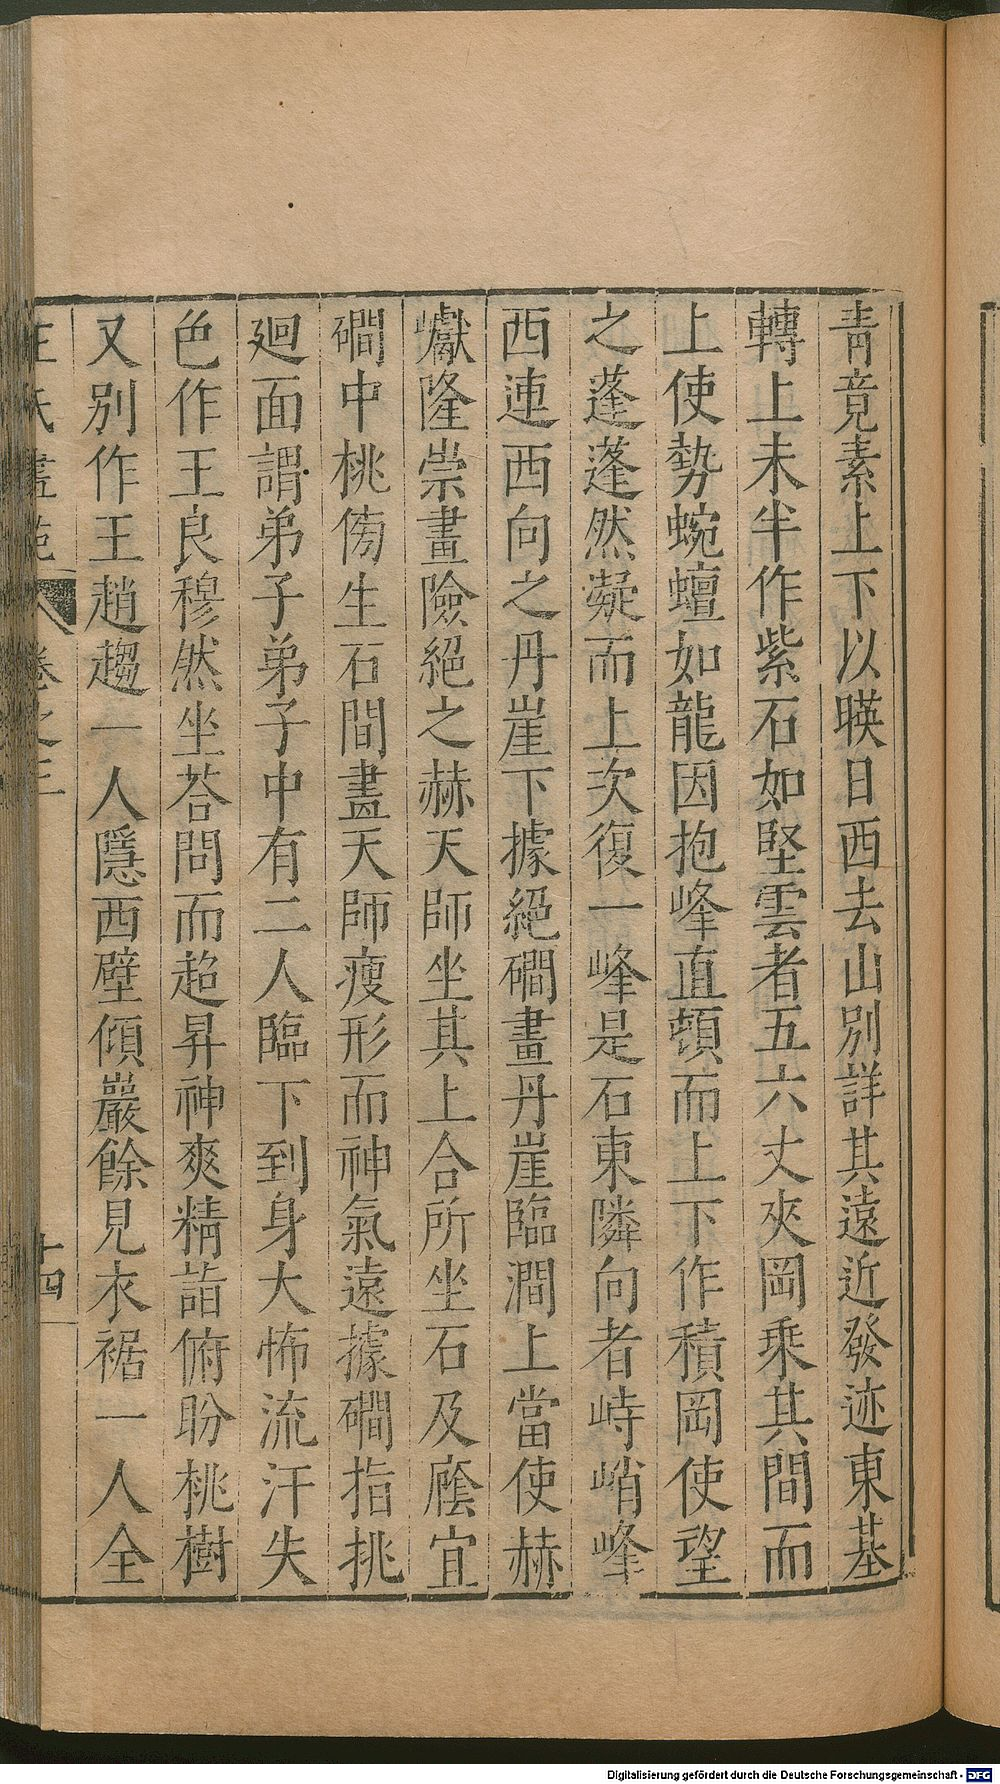 青竟素上下以暎日西去山別詳其遠近發迹東基
轉上未半作紫石如堅雲者五六丈夾岡乘其間而
上使勢蜿蟺如龍因抱峰直頓而上下作積岡使望
之蓬蓬然凝而上次復一峰是石東隣向者峙峭峰
西連西向之丹崖下據絕磵畫丹崖臨澗上當使赫
巘隆崇畫險絕之赫天師坐其上合所坐石及廕宜
磵中桃傍生石間畫天師瘦形而神氣遠據磵指挑
廻面謂弟子弟子中有二人臨下到身大怖流汗失
色作王良穆然坐荅問而超昇神爽精詣俯盼桃樹
又別作王趙趨一人隱西壁傾巖餘見衣裾一人全
王氏畫苑 卷之三 十四
Digitalisierung gefördert durch die Deutsche Forschungsgemeinschaft - DFG